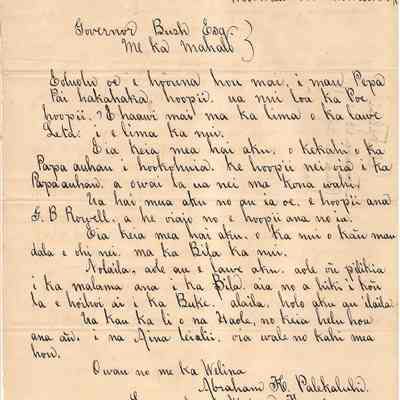 Governor Bush Esq.
Me ka Mahalo
Eoluolu oe e hoouna hou mai, i mau Pepa
Pai hakahaka, hoopii. ua nui loa ka Poe
hoopii. E haawi mai ma ka lima o ka Lawe
Leta; i e lima ka nui.
Eia keia mea hai aku. o kekahi o ka
Papa auhau i hookohuia. Ke hoopii nei oia i ka
Papa auhau. a owai la ua nei ma kona wahi.
Ua hai mua aku no au ia oe, e hoopii ana
G. B. Rowell. a he oiaio no e hoopii ana no ia.
Eia keia mea hai aku. o ka nui o ka'u mau
dala e ohi nei. ma ka Bila ka nui.
Nolaila, aole au e lawe aku. aole o'u pilikia
i ka malama ana i ka Bila. aia no a ko'u
la e hoihoi ai i ka Buke. alaila, holo aku au
Ua kau ka li o na Haole, no keia helu hou
ana i na Aina leialii. oia wale no kahi mea
hou.
Owau no me ka Welina
Abraham H. Palekaluhi.